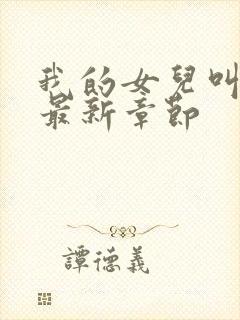 我的女兒叫
最新章節
譚德義